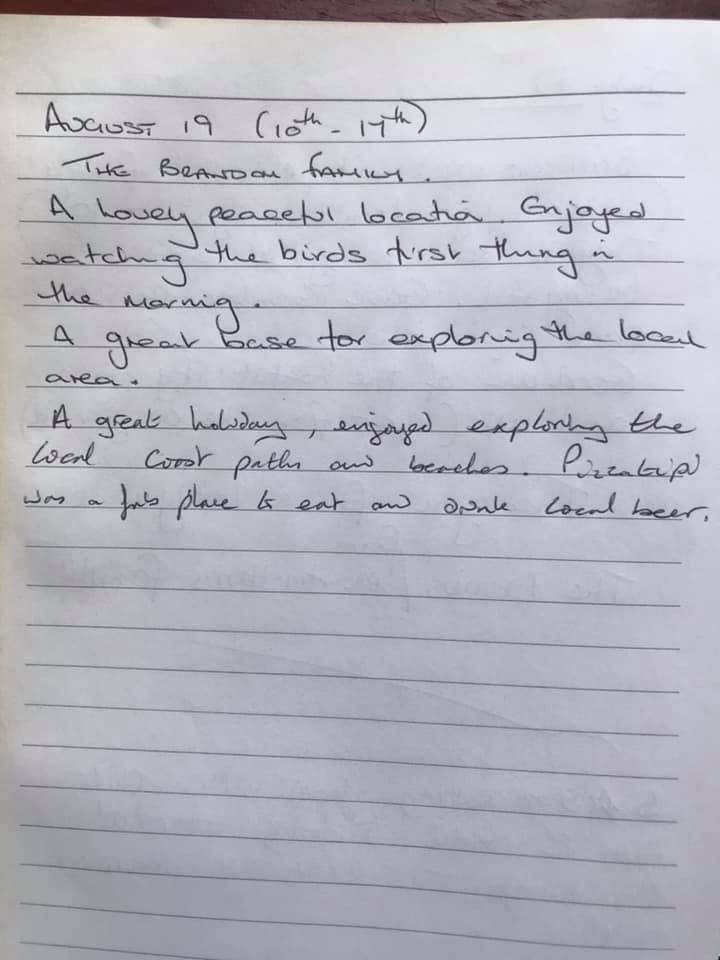 August 19 (10th - 17th)
The Brandon Family.
A lovely peaceful location. Enjoyed
watching the birds first thing in
the morning.
A great base for exploring the local
area.
A great holiday, enjoyed exploring the
local coast paths and beaches.
was a fab place to eat and drink local beer.